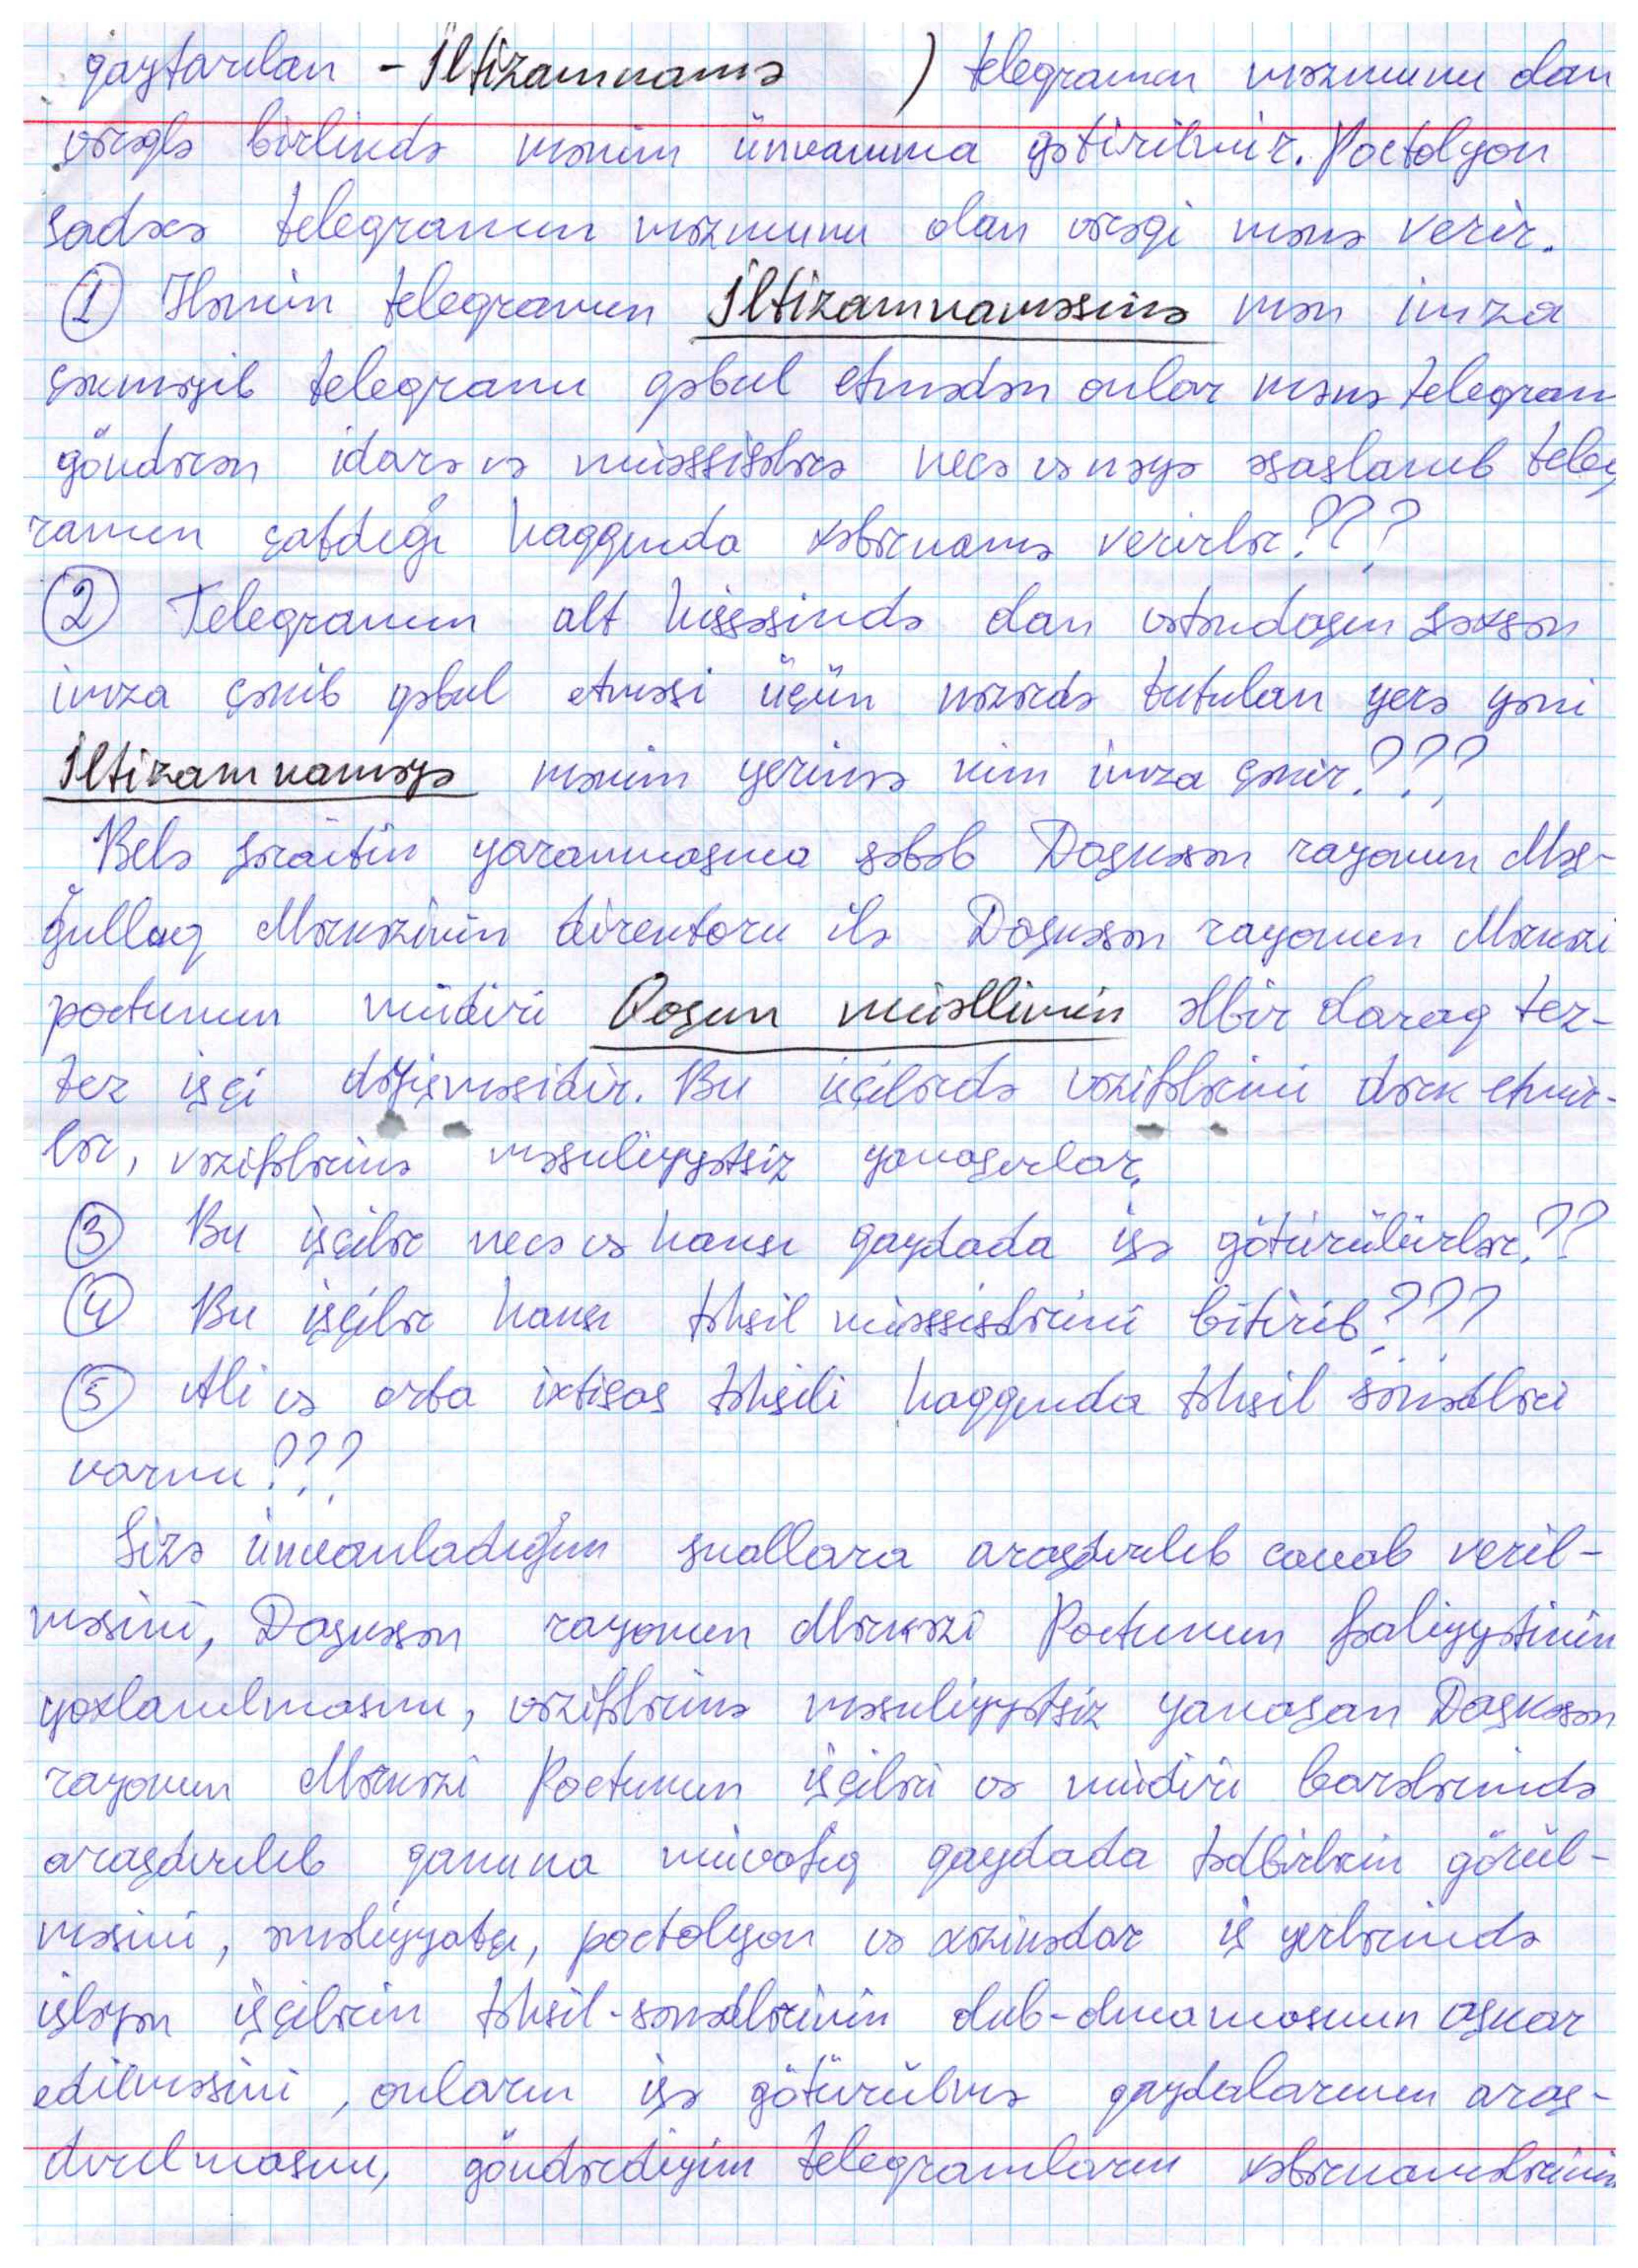 qaytarılan - İltizamnamə ) telegramın məzmunu olan
vərəqlə birlində mənim ünvanıma gətirilmir. Poctolyon
sadəcə telegramın məzmunu olan vərəqi mənə verir.
① Həmin telegramın İltizamnaməsinə mən imza
çəkməyib telegramı qəbul etmədən onlar mənə telegram
göndərən idarə və müəssisələrə necə və nəyə əsaslanıb teleq
ramın çatdığı haqqında xəbərnamə verirlər???
② Telegramın alt hissəsində olan vətəndaşın şəxsən
imza çəkib qəbul etməsi üçün nəzərdə tutulan yerə yəni
İltizamnaməyə mənim yerimə kim imza çəkir???
Belə şəraitin yaranmasına səbəb Daşkəsən rayonun Məş-
ğulluq Mərkəzinin direktoru ilə Daşkəsən rayonun Mərkəzi
poctunun müdiri Qoşun müəllimin əlbir olaraq tez-
tez işçi dəyişməsidir. Bu işçilərdə vəzifələrini dərk etmir-
lər, vəzifələrinə məsuliyyətsiz yanaşırlar.
③ Bu işçilər necə və hansı qaydada işə götürülürlər??
④ Bu işçilər hansı təhsil müəssisələrini bitirib???
⑤ Ali və orta ixtisas təhsili haqqında təhsil sənədləri
varmı???
Sizə ünvanladığım suallara araşdırılıb cavab veril-
məsini, Daşkəsən rayonun Mərkəzi Poctunun fəaliyyətinin
yoxlanılmasını, vəzifələrinə məsuliyyətsiz yanaşan Daşkəsən
rayonun Mərkəzi Poctunun işçiləri və müdiri barələrində
araşdırılıb qanuna müvafiq qaydada tədbirlərin görül-
məsini, əməliyyatçı, poctolyon və xəzinədar iş yerlərində
işləyən işçilərin təhsil-sənədlərinin olub-olmamasının aşkar
edilməsini, onların işə götürülmə qaydalarının araş-
dırılmasını, göndərdiyim telegramların xəbərnamələrinin